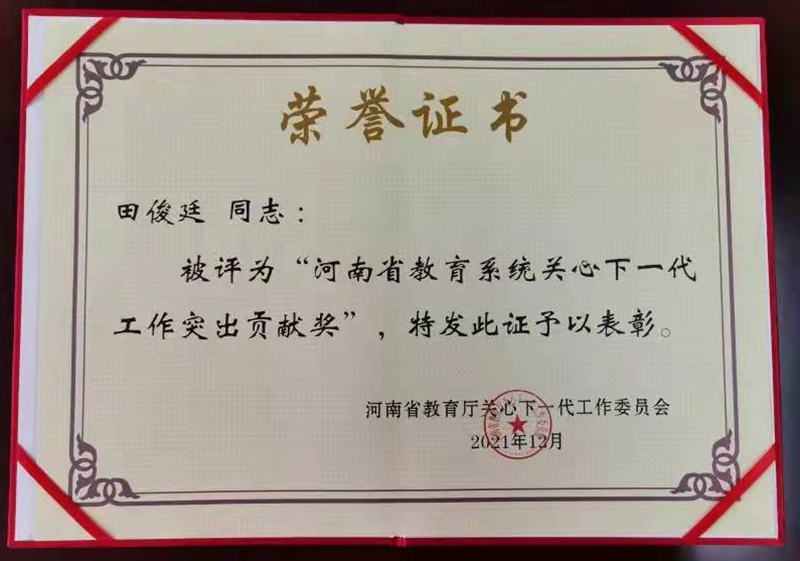 荣誉证书
田俊廷 同志：
被评为“河南省教育系统关心下一代
工作突出贡献奖”，特发此证予以表彰。
河南省教育厅关心下一代工作委员会
2021年12月